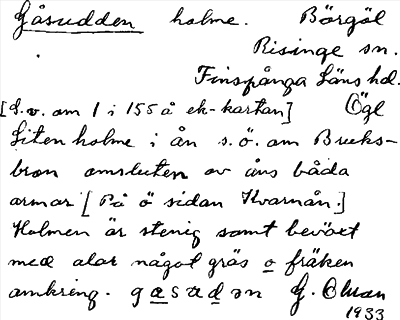 Gåsudden holme. Börgöl
Risinge sn.
Finspånga Läns hd.
[S.v. om 1 i 155 å ek-kartan] Ögl
Liten holme i ån s.ö. om Bruks-
bron omsluten av åns båda
armar [På ö sidan Kvarnån.]
Holmen är stenig samt beväxt
med alar något gräs o fräken
omkring. gåsudən G. Olman
1933